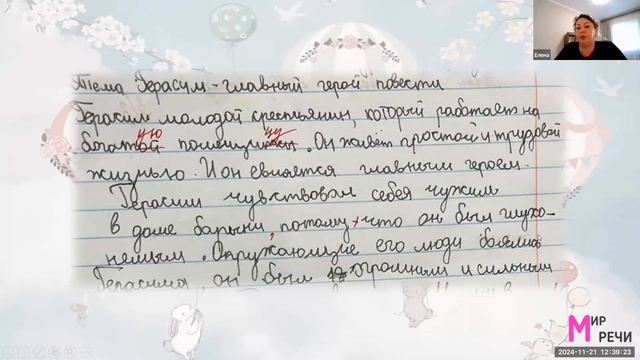 Тема Герасим - главный герой повести
Герасим молодой крестьянин, который работает на
ую цу
богатой помещицы. Он живёт простой и трудовой
жизнью. И он евляется главным героем.
Герасим чувствовал себя чужим
в доме барыни, потому что он был глухо-
немым. Окружающие его люди боялись
Герасима, он был огромным и сильным
Елена
МИР
РЕЧИ
2024-11-21 12:39:23